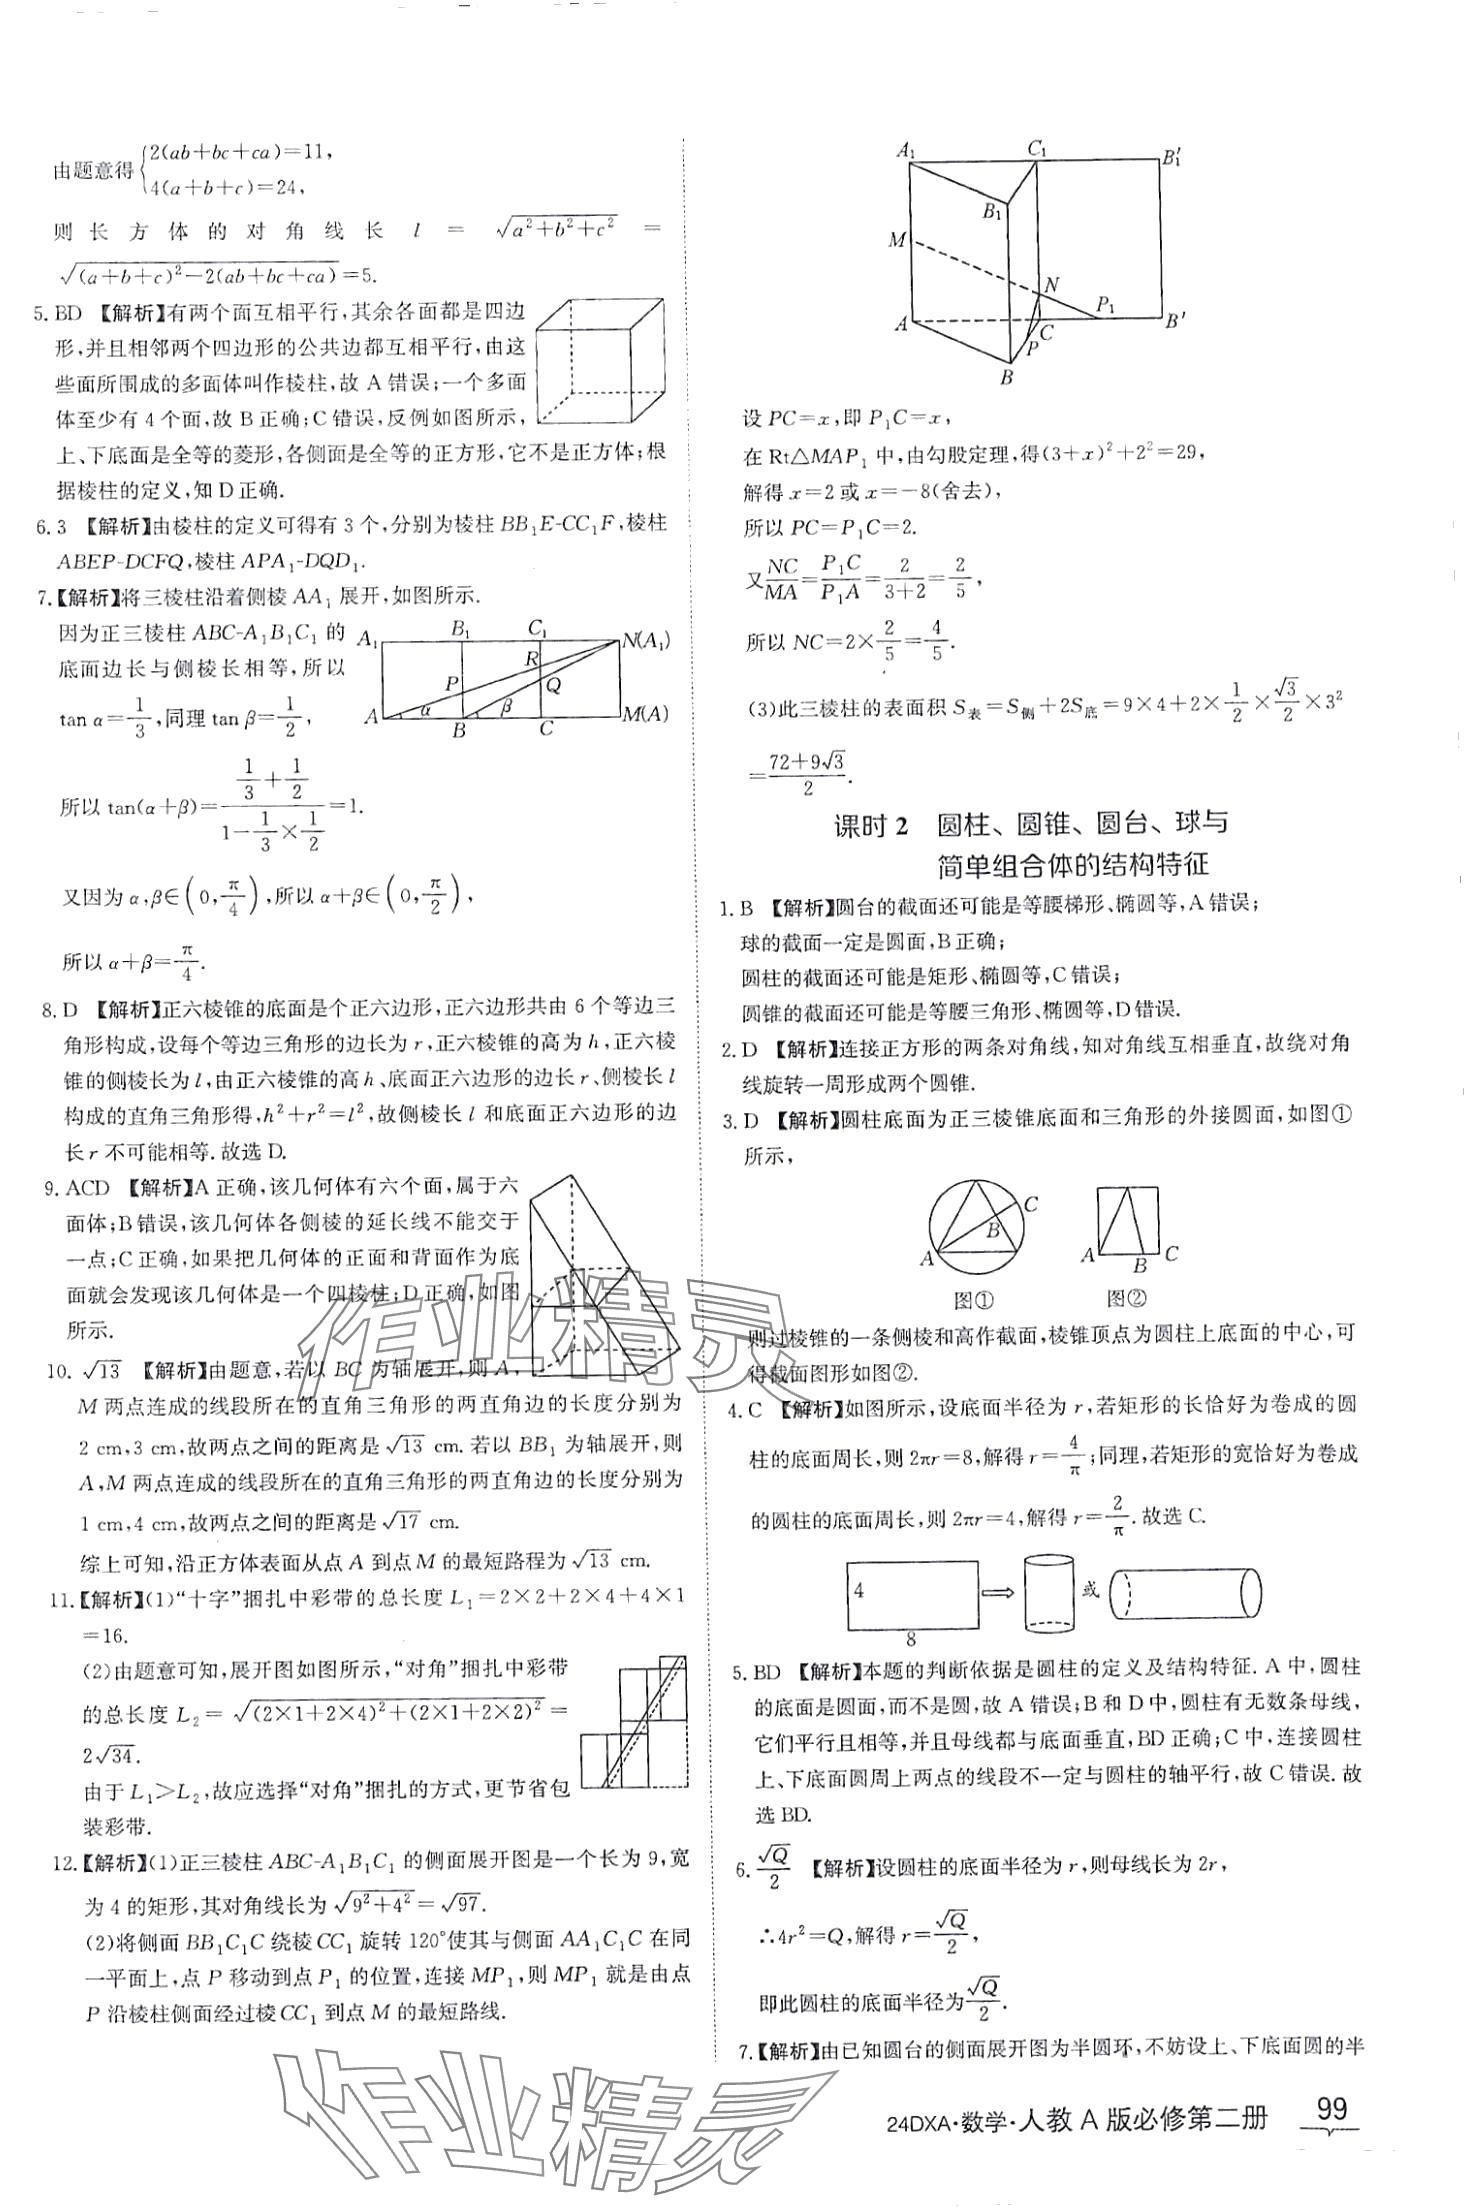 由题意得{2(ab+bc+ca)=11,
4(a+b+c)=24,
则长方体的对角线长 l = √(a²+b²+c²) =
√((a+b+c)²-2(ab+bc+ca))=5.
5. BD 【解析】有两个面互相平行,其余各面都是四边
形,并且相邻两个四边形的公共边都互相平行,由这
些面所围成的多面体叫作棱柱,故 A 错误;一个多面
体至少有 4 个面,故 B 正确;C 错误,反例如图所示,
上、下底面是全等的菱形,各侧面是全等的正方形,它不是正方体;根
据棱柱的定义,知 D 正确.
6. 3 【解析】由棱柱的定义可得有 3 个,分别为棱柱 BB₁E-CC₁F,棱柱
ABEP-DCFQ,棱柱 APA₁-DQD₁.
7.【解析】将三棱柱沿着侧棱 AA₁ 展开,如图所示.
因为正三棱柱 ABC-A₁B₁C₁ 的
底面边长与侧棱长相等,所以
tan α=1/3,同理 tan β=1/2,
A₁ B₁ C₁ N(A₁)
R
P Q
A α B β C M(A)
所以 tan(α+β)=(1/3+1/2)/(1-1/3×1/2)=1.
又因为 α,β∈(0,π/4),所以 α+β∈(0,π/2),
所以 α+β=π/4.
8. D 【解析】正六棱锥的底面是个正六边形,正六边形共由 6 个等边三
角形构成,设每个等边三角形的边长为 r,正六棱锥的高为 h,正六棱
锥的侧棱长为 l,由正六棱锥的高 h、底面正六边形的边长 r、侧棱长 l
构成的直角三角形得,h²+r²=l²,故侧棱长 l 和底面正六边形的边
长 r 不可能相等.故选 D.
9. ACD 【解析】A 正确,该几何体有六个面,属于六
面体;B 错误,该几何体各侧棱的延长线不能交于
一点;C 正确,如果把几何体的正面和背面作为底
面就会发现该几何体是一个四棱柱;D 正确,如图
所示.
10. √13 【解析】由题意,若以 BC 为轴展开,则 A,
M 两点连成的线段所在的直角三角形的两直角边的长度分别为
2 cm,3 cm,故两点之间的距离是 √13 cm.若以 BB₁ 为轴展开,则
A,M 两点连成的线段所在的直角三角形的两直角边的长度分别为
1 cm,4 cm,故两点之间的距离是 √17 cm.
综上可知,沿正方体表面从点 A 到点 M 的最短路程为 √13 cm.
11.【解析】(1)“十字”捆扎中彩带的总长度 L₁=2×2+2×4+4×1
=16.
(2)由题意可知,展开图如图所示,“对角”捆扎中彩带
的总长度 L₂ = √((2×1+2×4)²+(2×1+2×2)²) =
2√34.
由于 L₁>L₂,故应选择“对角”捆扎的方式,更节省包
装彩带.
12.【解析】(1)正三棱柱 ABC-A₁B₁C₁ 的侧面展开图是一个长为 9,宽
为 4 的矩形,其对角线长为 √(9²+4²)=√97.
(2)将侧面 BB₁C₁C 绕棱 CC₁ 旋转 120°使其与侧面 AA₁C₁C 在同
一平面上,点 P 移动到点 P₁ 的位置,连接 MP₁,则 MP₁ 就是由点
P 沿棱柱侧面经过棱 CC₁ 到点 M 的最短路线.
A₁ C₁ B′₁
B₁
M
N
P₁
A C B′
P
B
设 PC=x,即 P₁C=x,
在 Rt△MAP₁ 中,由勾股定理,得(3+x)²+2²=29,
解得 x=2 或 x=-8(舍去),
所以 PC=P₁C=2.
又NC/MA=P₁C/P₁A=2/(3+2)=2/5,
所以 NC=2×2/5=4/5.
(3)此三棱柱的表面积 S表=S侧+2S底=9×4+2×1/2×√3/2×3²
=(72+9√3)/2.
课时 2 圆柱、圆锥、圆台、球与
简单组合体的结构特征
1. B 【解析】圆台的截面还可能是等腰梯形、椭圆等,A 错误;
球的截面一定是圆面,B 正确;
圆柱的截面还可能是矩形、椭圆等,C 错误;
圆锥的截面还可能是等腰三角形、椭圆等,D 错误.
2. D 【解析】连接正方形的两条对角线,知对角线互相垂直,故绕对角
线旋转一周形成两个圆锥.
3. D 【解析】圆柱底面为正三棱锥底面和三角形的外接圆面,如图①
所示,
A B C
A B C
图① 图②
则过棱锥的一条侧棱和高作截面,棱锥顶点为圆柱上底面的中心,可
得截面图形如图②.
4. C 【解析】如图所示,设底面半径为 r,若矩形的长恰好为卷成的圆
柱的底面周长,则 2πr=8,解得 r=4/π;同理,若矩形的宽恰好为卷成
的圆柱的底面周长,则 2πr=4,解得 r=2/π.故选 C.
4 8 或
5. BD 【解析】本题的判断依据是圆柱的定义及结构特征. A 中,圆柱
的底面是圆面,而不是圆,故 A 错误;B 和 D 中,圆柱有无数条母线,
它们平行且相等,并且母线都与底面垂直,BD 正确;C 中,连接圆柱
上、下底面圆周上两点的线段不一定与圆柱的轴平行,故 C 错误.故
选 BD.
6. √Q/2 【解析】设圆柱的底面半径为 r,则母线长为 2r,
∴4r²=Q,解得 r=√Q/2,
即此圆柱的底面半径为√Q/2.
7.【解析】由已知圆台的侧面展开图为半圆环,不妨设上、下底面圆的半
24DXA·数学·人教 A 版必修第二册 99
作业精灵
作业精灵